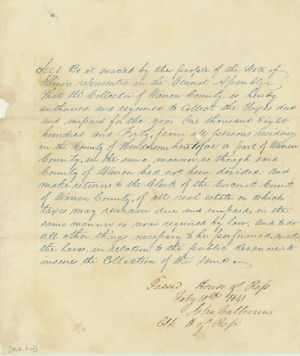 Sec 1 Be it enacted by the people of the State of
Illinois represented in the General Assembly
That the Collector of Warren County, is hereby
authorised and required to collect the Taxes due
and unpaid for the year One thousand Eight
hundred and Forty, from all persons residing
in the County of Henderson heretofore a part of Warren
County, in the same manner, as though said
County of Warren had not been divided. And
make returns to the Clerk of the Circuit Court
of Warren County, of all real estate on which
taxes may remain due and unpaid, in the
same manner as now required by law, And to do
all other things necessary to be performed, under
the laws, in relation to the public Revenue to
insure the Collection of the same.
Passed House of Reps
Feby 10th 1841
John Calhoun
Clk H of Reps